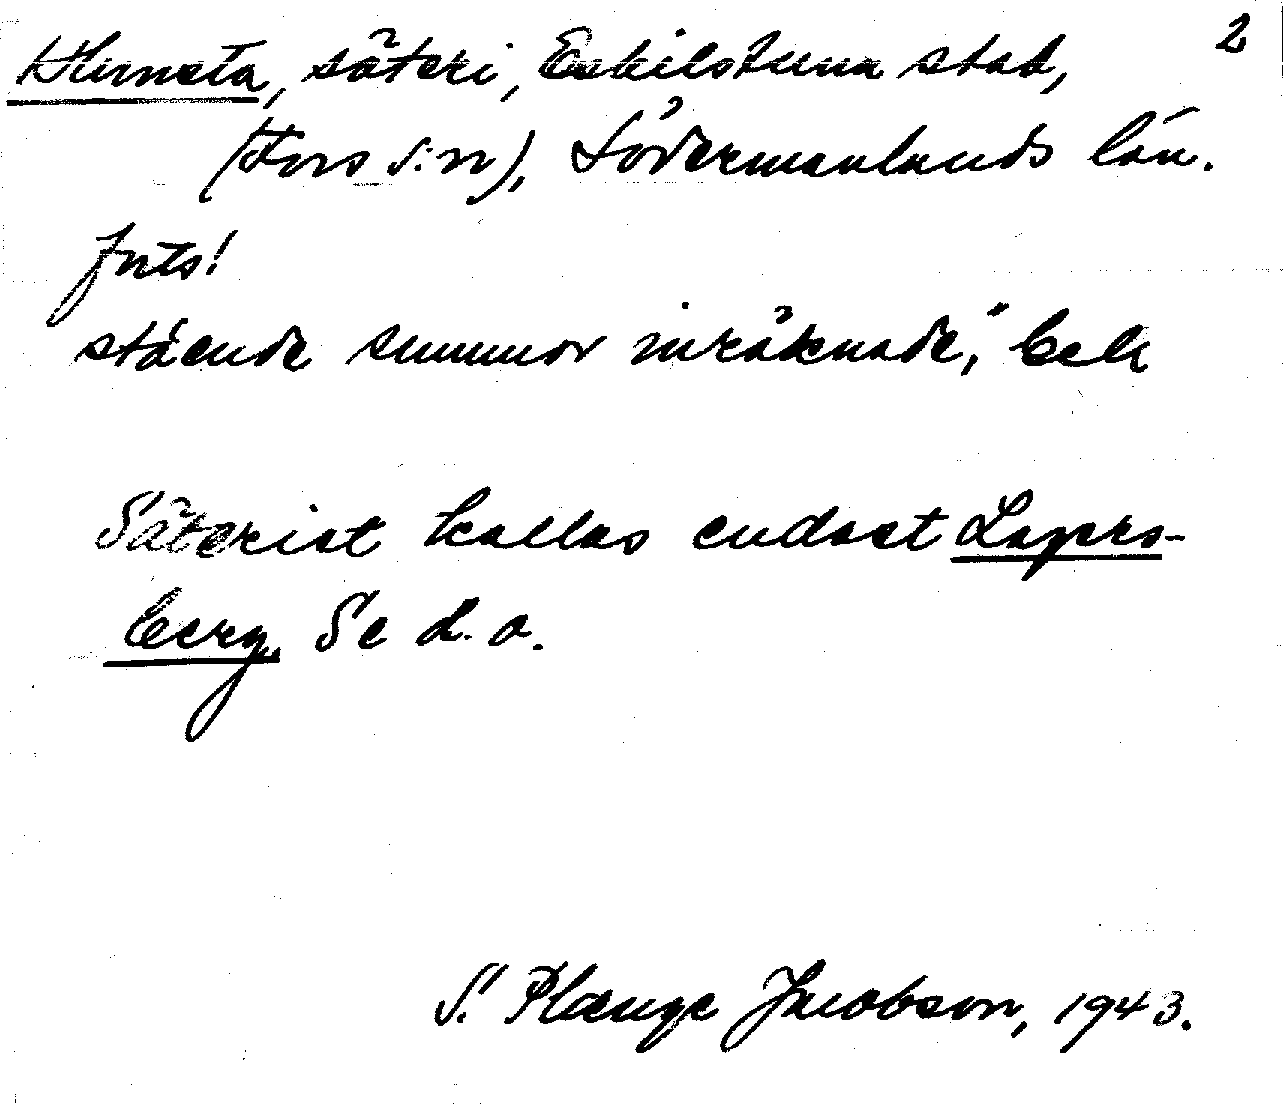 2
Klumsta, säteri, Eskilstuna stad,
(Fors s:n), Södermanlands län.
forts!
stående summor inräknade," bela
Säteriet kallas endast Lagers-
berg. Se d. o.
S. Plænge Jacobson, 1943.